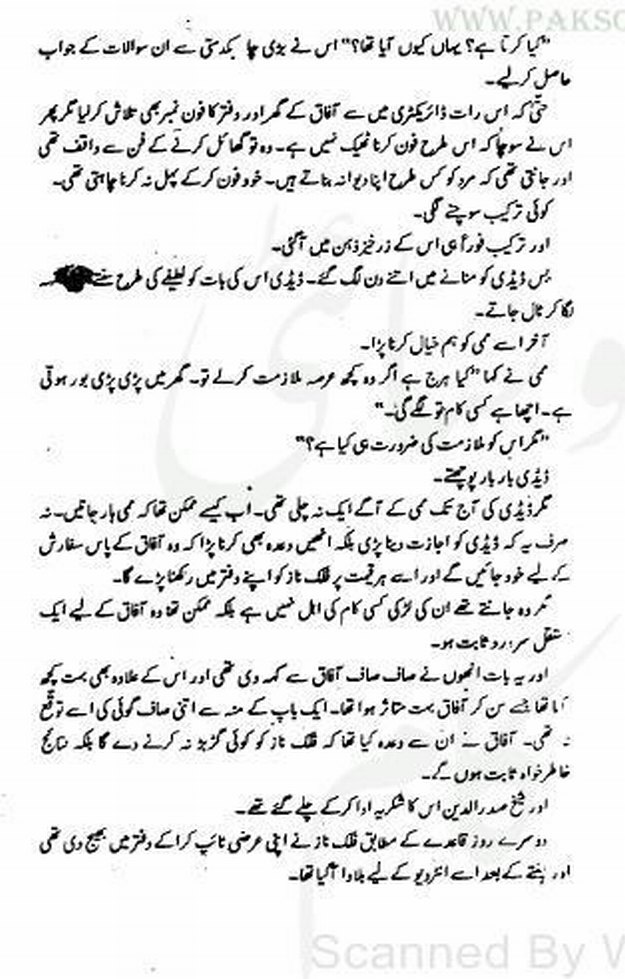 WWW.PAKSO
"کیا کرتا ہے؟ یہاں کیوں آیا تھا؟" اس نے بڑی چابکدستی سے ان سوالات کے جواب
حاصل کرلیے۔
حتیٰ کہ اس رات ڈائریکٹری میں سے آفاق کے گھر اور دفتر کا فون نمبر بھی تلاش کرلیا مگر پھر
اس نے سوچا کہ اس طرح فون کرنا ٹھیک نہیں ہے۔ وہ تو گھائل کرنے کے فن سے واقف تھی
اور جانتی تھی کہ مرد کو کس طرح اپنا دیوانہ بناتے ہیں۔ خود فون کرکے پہل نہ کرنا چاہتی تھی۔
کوئی ترکیب سوچنے لگی۔
اور ترکیب فوراً ہی اس کے زرخیز ذہن میں آگئی۔
بس ڈیڈی کو منانے میں اتنے دن لگ گئے۔ ڈیڈی اس کی بات کو لطیفے کی طرح سنتے
لگا کر ٹال جاتے۔
آخر اسے ممی کو ہم خیال کرنا پڑا۔
ممی نے کہا "کیا ہرج ہے اگر وہ کچھ عرصہ ملازمت کرلے تو۔ گھر میں پڑی پڑی بور ہوتی
ہے۔ اچھا ہے کسی کام تو لگے گی۔"
"مگر اس کو ملازمت کی ضرورت ہی کیا ہے؟"
ڈیڈی بار بار پوچھتے۔
مگر ڈیڈی کی آج تک ممی کے آگے ایک نہ چلی تھی۔ اب کیسے ممکن تھا کہ ممی ہار جاتیں۔ نہ
صرف یہ کہ ڈیڈی کو اجازت دینا پڑی بلکہ انھیں وعدہ بھی کرنا پڑا کہ وہ آفاق کے پاس سفارش
کے لیے خود جائیں گے اور اسے ہر قیمت پر فلک ناز کو اپنے دفتر میں رکھنا پڑے گا۔
مگر وہ جانتے تھے ان کی لڑکی کسی کام کی اہل نہیں ہے بلکہ ممکن تھا وہ آفاق کے لیے ایک
مستقل سردرد ثابت ہو۔
اور یہ بات انھوں نے صاف صاف آفاق سے کہہ دی تھی اور اس کے علاوہ بھی بہت کچھ
کہا تھا جسے سن کر آفاق بہت متاثر ہوا تھا۔ ایک باپ کے منہ سے اتنی صاف گوئی کی اسے توقع
نہ تھی۔ آفاق نے ان سے وعدہ کیا تھا کہ فلک ناز کو کوئی گڑبڑ نہ کرنے دے گا بلکہ نتائج
خاطر خواہ ثابت ہوں گے۔
اور شیخ صدر الدین اس کا شکریہ ادا کرکے چلے گئے تھے۔
دوسرے روز قاعدے کے مطابق فلک ناز نے اپنی عرضی ٹائپ کرا کے دفتر میں بھیج دی تھی
اور ہفتے کے بعد اسے انٹرویو کے لیے بلاوا آگیا تھا۔
Scanned By W